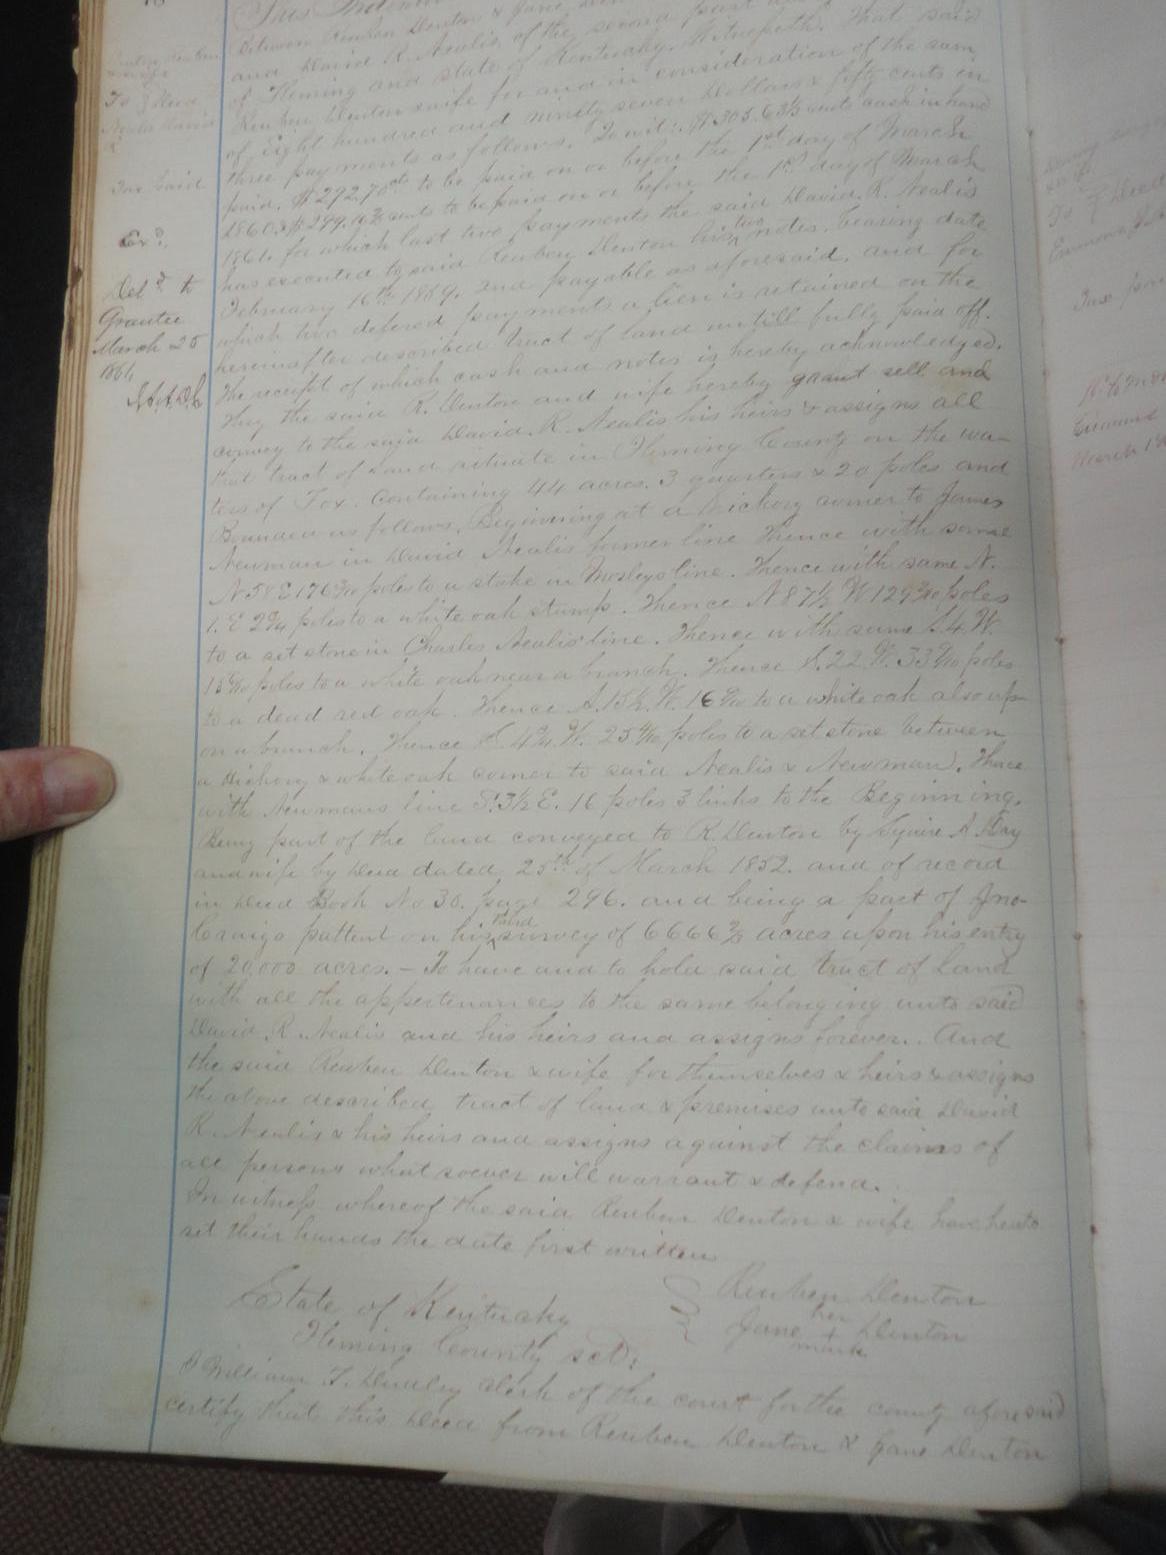 This Indenture
between Reuben Denton & Jane
and David R. Nealis of the second part
of Fleming and state of Kentucky. Witnesseth. That said
Reuben Denton & wife for and in consideration of the sum
of Eight hundred and ninety seven Dollars & fifty cents in
three payments as follows. To wit: $305.63½ cents cash in hand
paid. $292.70 cts to be paid on or before the 1st day of March
1860 & $299.16⅔ cents to be paid on or before the 1st day of March
1861. for which last two payments the said David. R. Nealis
has executed to said Reuben Denton his two notes. bearing date
February 16th 1859. and payable as aforesaid. and for
which two defered payments a lien is retained on the
hereinafter described tract of land untill fully paid off.
The receipt of which cash and notes is hereby acknowledged.
They the said R. Denton and wife hereby grant sell and
convey to the said David. R. Nealis his heirs & assigns all
that tract of Land situate in Fleming County on the wa-
ters of Fox. Containing 44 acres. 3 quarters & 20 poles and
Bounded as follows. Beginning at a hickory corner to James
Newman in David Nealis former line Thence with same
N 58 E 176 poles to a stake in Mosleys line. Thence with same N.
1. E 2¾ poles to a white oak stump. Thence N 87½ W 129 poles
to a set stone in Charles Nealis' line. Thence with same S. 4. W.
15 poles to a white oak near a branch. Thence S. 22 W. 33 poles
to a dead red oak. Thence S. 15½ W. 16 to a white oak also up-
on a branch. Thence S 4¾ W. 25 poles to a set stone between
a Hickory & white oak corner to said Nealis & Newman. Thence
with Newmans line S. 3½ E. 16 poles 3 links to the Beginning.
Being part of the land conveyed to R. Denton by Squire A Day
and wife by Deed dated 25th of March 1852. and of record
in Deed Book No 30. page 296. and being a part of Jno-
Craigs pattent on his third survey of 6666⅔ acres upon his entry
of 20,000 acres. - To have and to hold said tract of Land
with all the appertenances to the same belonging unto said
David. R. Nealis and his heirs and assigns forever. And
the said Reuben Denton & wife for themselves & heirs & assigns
the above described tract of land & premises unto said David
R. Nealis & his heirs and assigns against the claims of
all persons what soever will warrant & defend.
In witness whereof the said Reuben Denton & wife have hereto
set their hands the date first written
Reuben Denton
her
Jane + Denton
mark
State of Kentucky
Fleming County sct:
I William T. Dudley clerk of the court for the county aforesaid
certify that this Deed from Reuben Denton & Jane Denton
Denton Reuben
To } Deed
Nealis David
R
Tax paid
Exd.
Deld. to
Grantee
March 25
1864
To } Deed
March